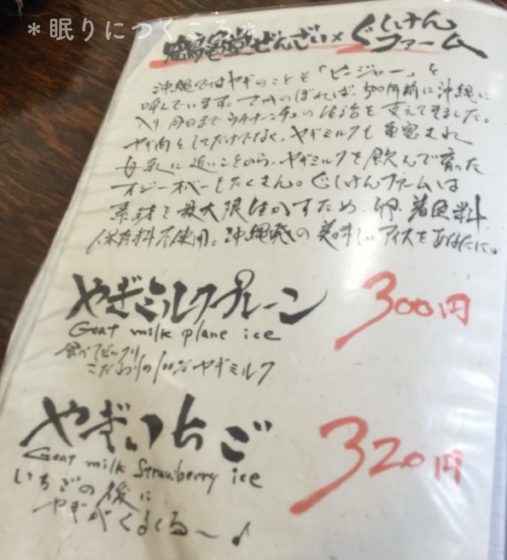 ＊眠りにつくころ＊
鶴亀堂ぜんざい×ぐしけんファーム
沖縄ではヤギのことを「ヒージャー」と
呼んでいます。さかのぼれば、500年前に沖縄に
入り、今日までウチナーンチュの生活を支えてきました。
ヤギ肉としてだけでなく、ヤギミルクも重宝され
母乳に近いことから、ヤギミルクを飲んで育った
オジーオバーもたくさん。ぐしけんファームは
素材を最大限に生かすため、卵、着色料
保存料不使用。沖縄発の美味しいアイスをあなたに。
やぎミルクプレーン 300円
Goat milk plane ice
食べてビックリ
こだわりの100%ヤギミルク
やぎいちご 320円
Goat milk Strawberry ice
いちごの後に
ヤギがくるくる〜♪